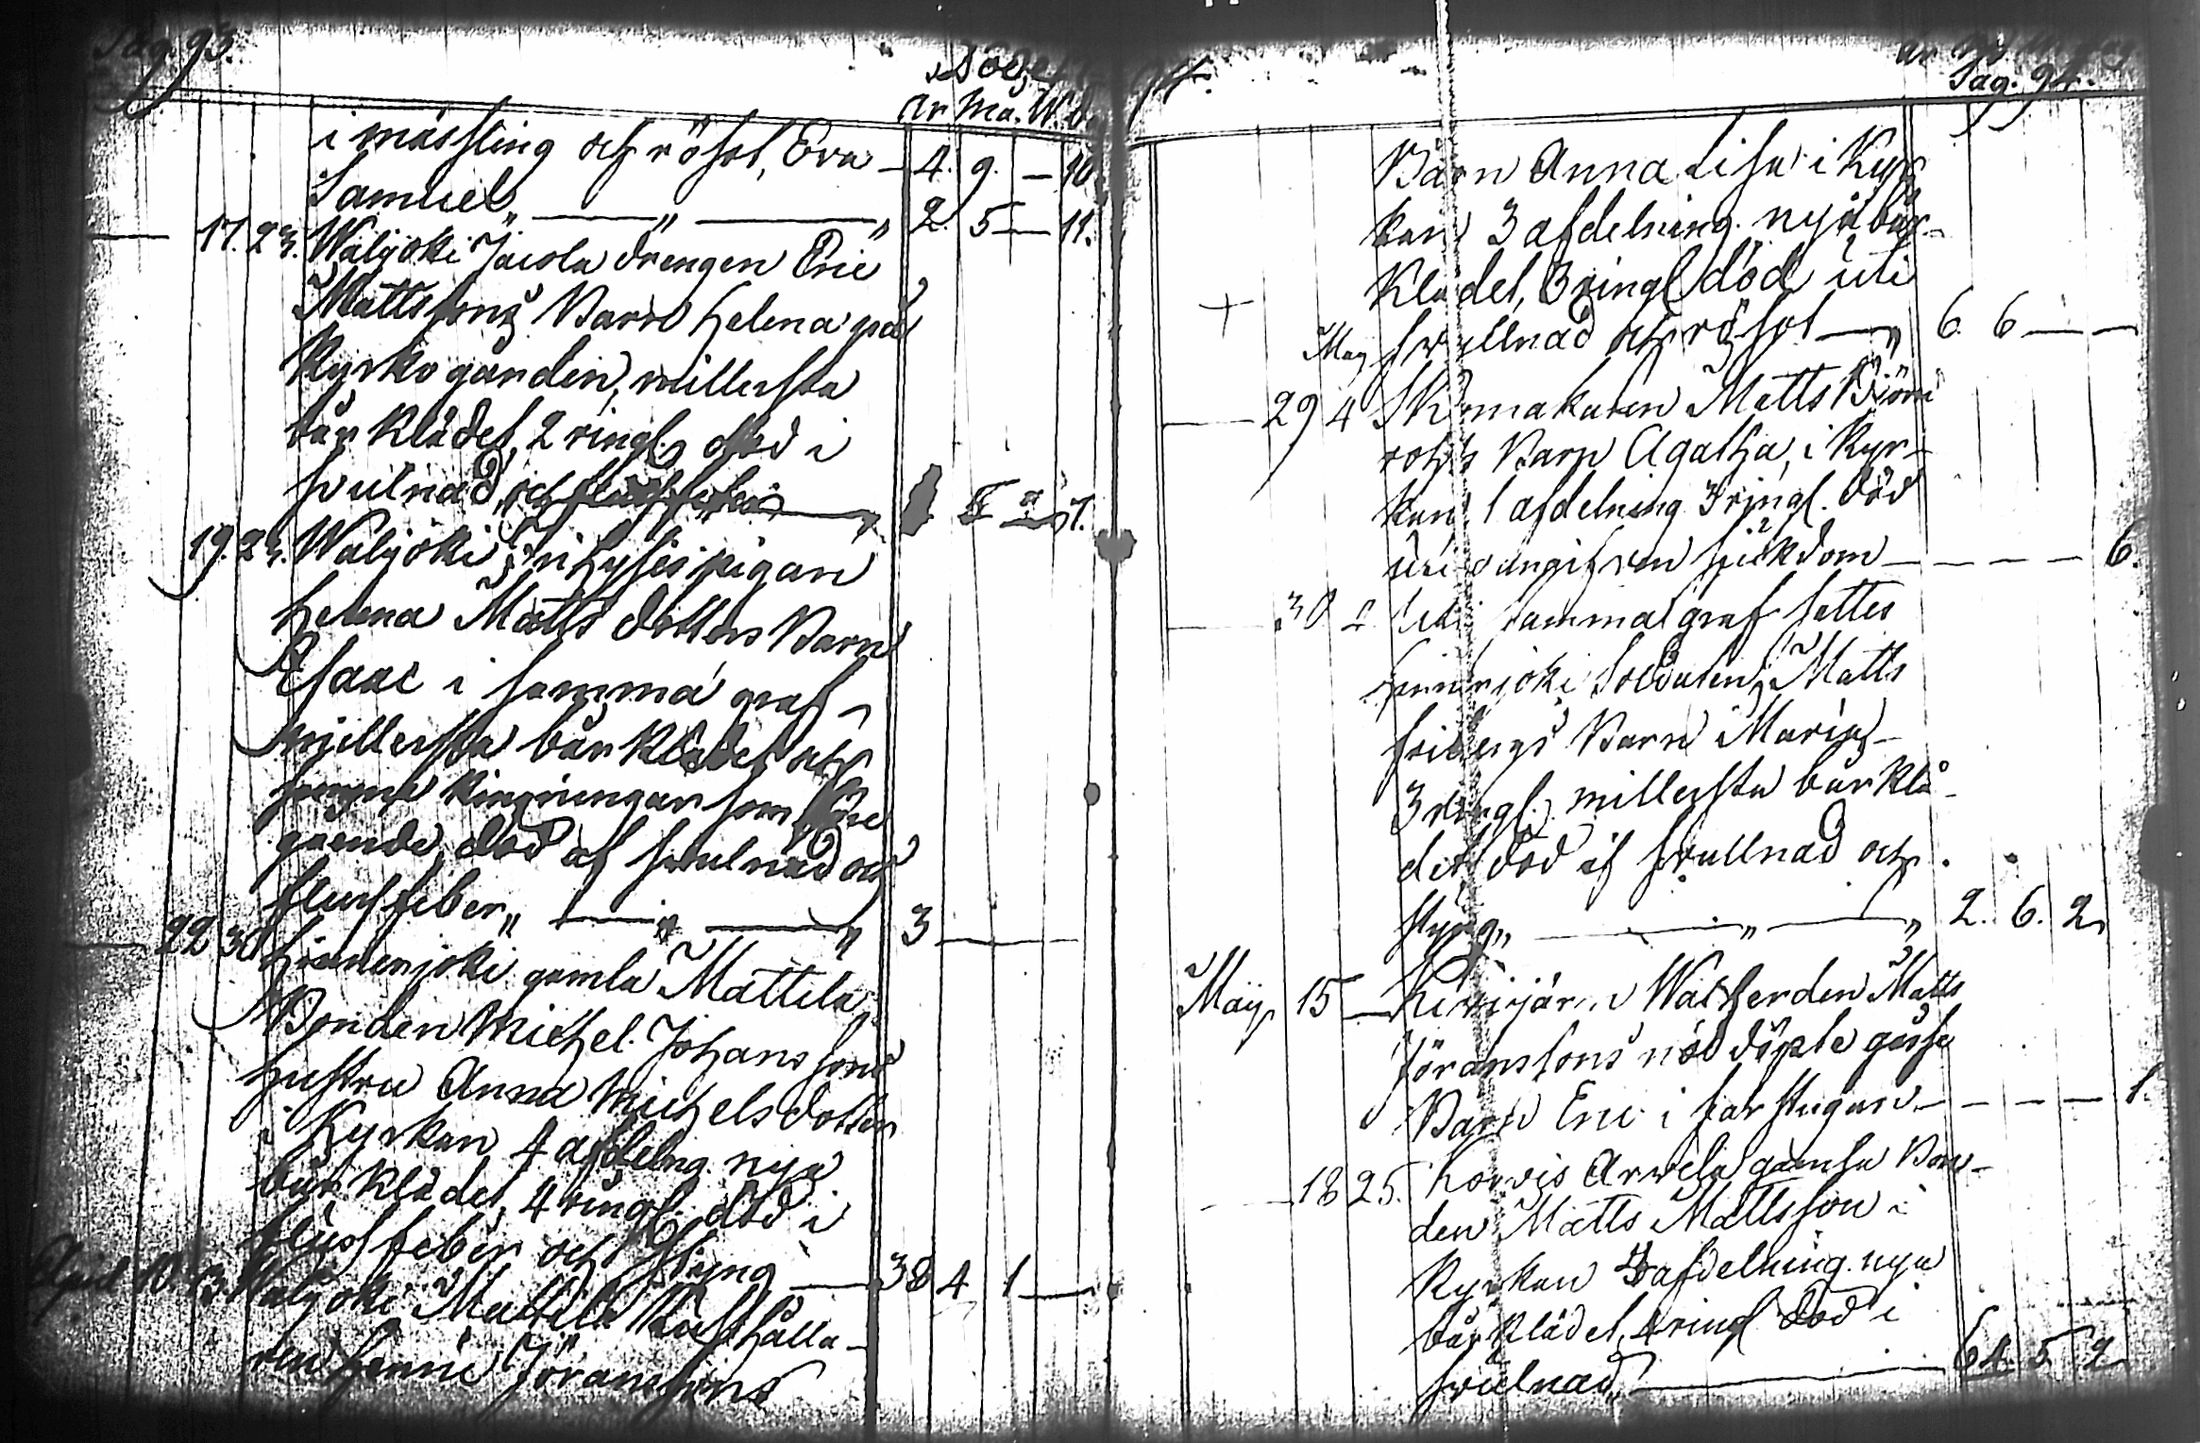 Pag. 93.
År Må. W. d.
i mässling och rösot, Eva — 4. 9. — 10
Samuel „ — „ — „ 2. 5 — 11.
17. 23. Waljoki Jacola drengen Eric
Mattssons Barn Helena på
Kyrkogården, millersta
bårklädet, 2 ringl. död i
svulnad, och 7.
19. 23. Waljoki Inhyses pigan
Helena Matts dotters Barn
Isaac i samma graf
millersta bårklädet och
samma ringningar som före
gående, död af svulnad och
flussfeber „ — „ — „ 3 — — —
22 30 gamla Mattila
Bonden Michel Johanssons
hustru Anna Michelsdotter
i Kyrkan 4 afdelng. nya
bårklädet, 4 ringl. död i
flussfeber och styng — 38 4 1 —
April 10. 13 Waljoki Mattila Rusthålla-
ren Henric Jöranssons
Pag. 94.
Barn Anna Lisa i Kyr
kan 3 afdelning. nya bår-
klädet, 3 ringl. död uti
svullnad och rösot — „ 6 6 — —
May
29 4 Skomakaren Matts Björn
roths Barn Agatha, i Kyr-
kan, 1 afdelning 3 ringl. död
uti oangifven siukdom — — — — 6.
30 Uti samma graf sattes
Soldaten Matts
Fribergs Barn Maria
3 ringl. millersta bårklä-
det död af svullnad och
styng „ — „ — „ 2. 6. 2
May 15 — Matts
Jöranssons nöddöpte gosse
Barn Eric i farstugan — — — — 1.
18 25. Korvis Arvela gamla Bon-
den Matts Mattsson i
Kyrkan afdelning. nya
bårklädet, 4 ringl. död i
svulnad „ — 64. 5 2